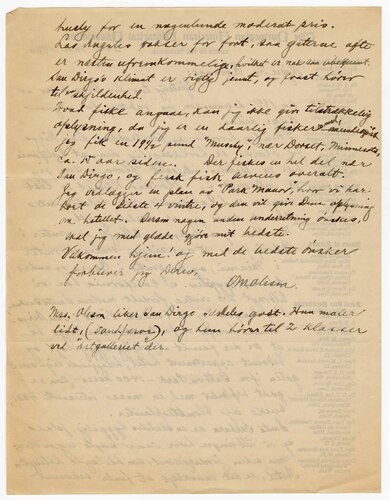 husly for en nogenlunde moderat pris.
Los Angeles vokser for fort, saa gaterne ofte
er næsten ufremkommelige, hvilket er nok saa ubekvemt.
San Diego's klimat er rigtig jevnt, og frost hører
til skjeldenhed.
Hvad fiske angaar, kan jeg ikke give tilstrækkelig
oplysning, da jeg er en daarlig fisker
Jeg fik en 199# send "Musky", nær Dorset, Minnesota,
ca. 15 aar siden. Der fiskes en hel del nær
San Diego, og fersk fisk averteres overalt.
Jeg vedlægger en plan av "Park Manor", hvor vi har
bort de sidste 4 vintre, og den vil give Dem oplysning
om hotellet. Dersom nogen anden underretning ønskes,
skal jeg med glæde gjøre mit bedste.
Velkommen hjem! og med de bedste ønsker
forbliver jeg Deres,
O M Oleson.
Mrs. Oleson liker San Diego særdeles godt. Hun maler
lidt, (landskaper), og hun hører til 2 klasser
ved Artgalleriet der.